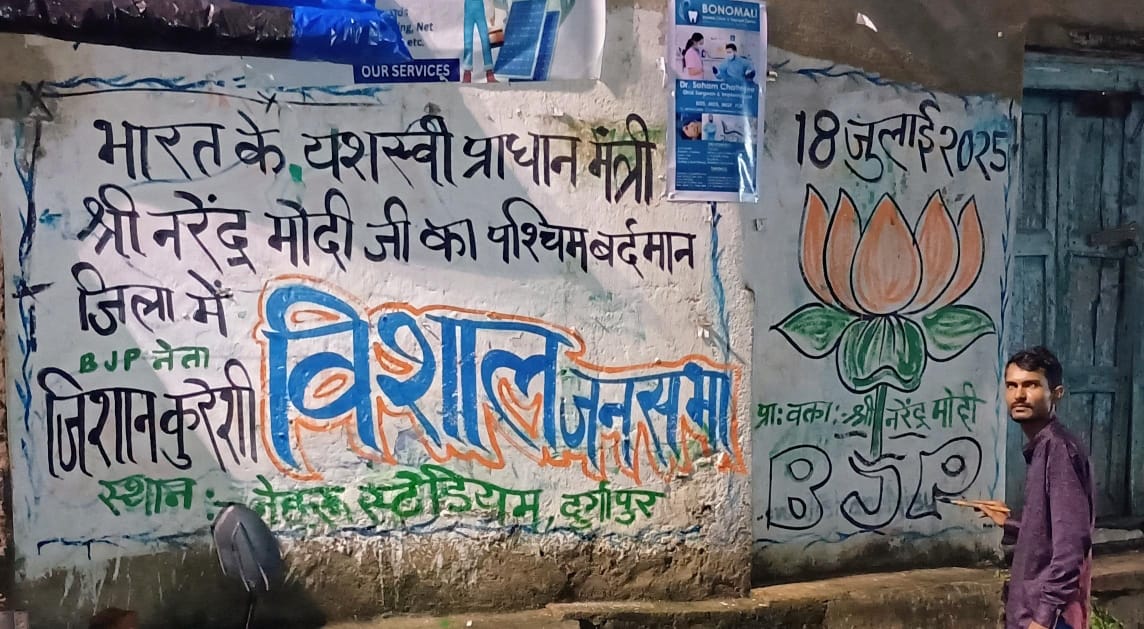 ing, Net
etc.
OUR SERVICES
BONOMALI
Dr. Soham Chatterjee
भारत के यशस्वी प्राधान मंत्री
श्री नरेंद्र मोदी जी का पश्चिम बर्दमान
जिला में
BJP नेता
जिशान कुरेशी
विशाल जनसभा
स्थान :- नेहरू स्टेडियम, दुर्गापुर
18 जुलाई २०२५
प्रा: वक्ता :- श्री नरेंद्र मोदी
BJP